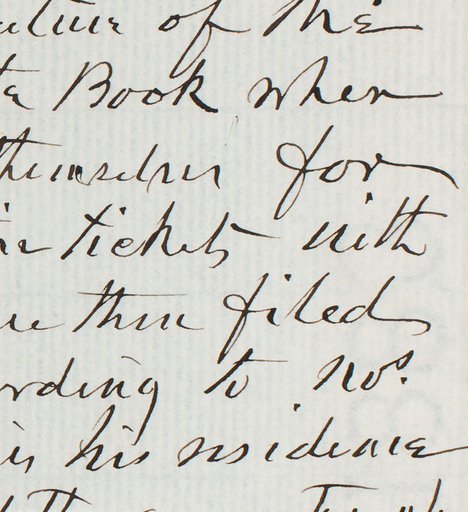 of the
Book when
themselves for
tickets with
then filed
to nos.
his residence